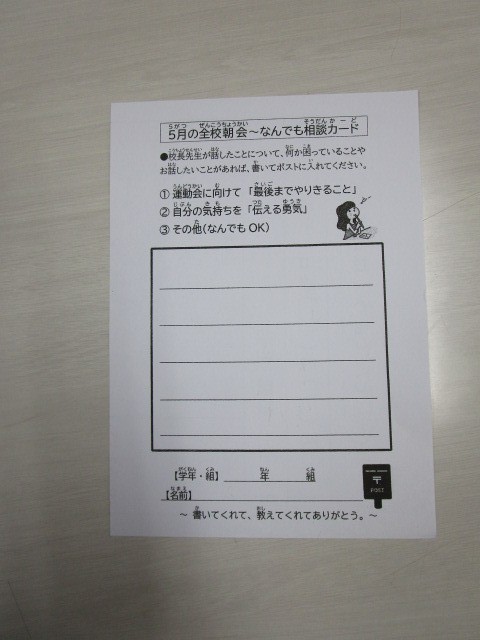 5月の全校朝会～なんでも相談カード
●校長先生が話したことについて、何か困っていることや
お話したいことがあれば、書いてポストに入れてください。
① 運動会に向けて 「最後までやりきること」
② 自分の気持ちを 「伝える勇気」
③ その他(なんでも OK)
【学年・組】 年 組
【名前】
〒
POST
～ 書いてくれて、教えてくれてありがとう。～